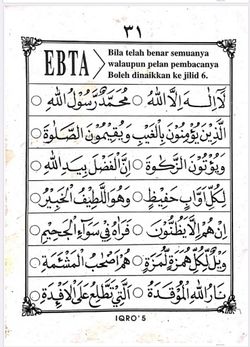 ٣١
EBTA
Bila telah benar semuanya
walaupun pelan pembacanya
Boleh dinaikkan ke jilid 6.
لَآ اِلٰهَ اِلَّا اللهُ ○ مُحَمَّدٌ رَّسُوْلُ اللهِ ○
الَّذِيْنَ يُؤْمِنُوْنَ بِالْغَيْبِ وَيُقِيْمُوْنَ الصَّلٰوةَ
وَيُؤْتُوْنَ الزَّكٰوةَ ○ اِنَّ الْفَضْلَ بِيَدِ اللهِ ○
لِكُلِّ اَوَّابٍ حَفِيْظٍ ○ وَهُوَ اللَّطِيْفُ الْخَبِيْرُ ○
اِنْ هُمْ اِلَّا يَظُنُّوْنَ ○ فَرَاٰهُ فِيْ سَوَآءِ الْجَحِيْمِ
وَيْلٌ لِّكُلِّ هُمَزَةٍ لُّمَزَةٍ ○ هُمْ اَصْحٰبُ الْمَشْئَمَةِ ○
نَارُ اللهِ الْمُوْقَدَةُ ○ الَّتِيْ تَطَّلِعُ عَلَى الْاَفْئِدَةِ ○
IQRO' 5